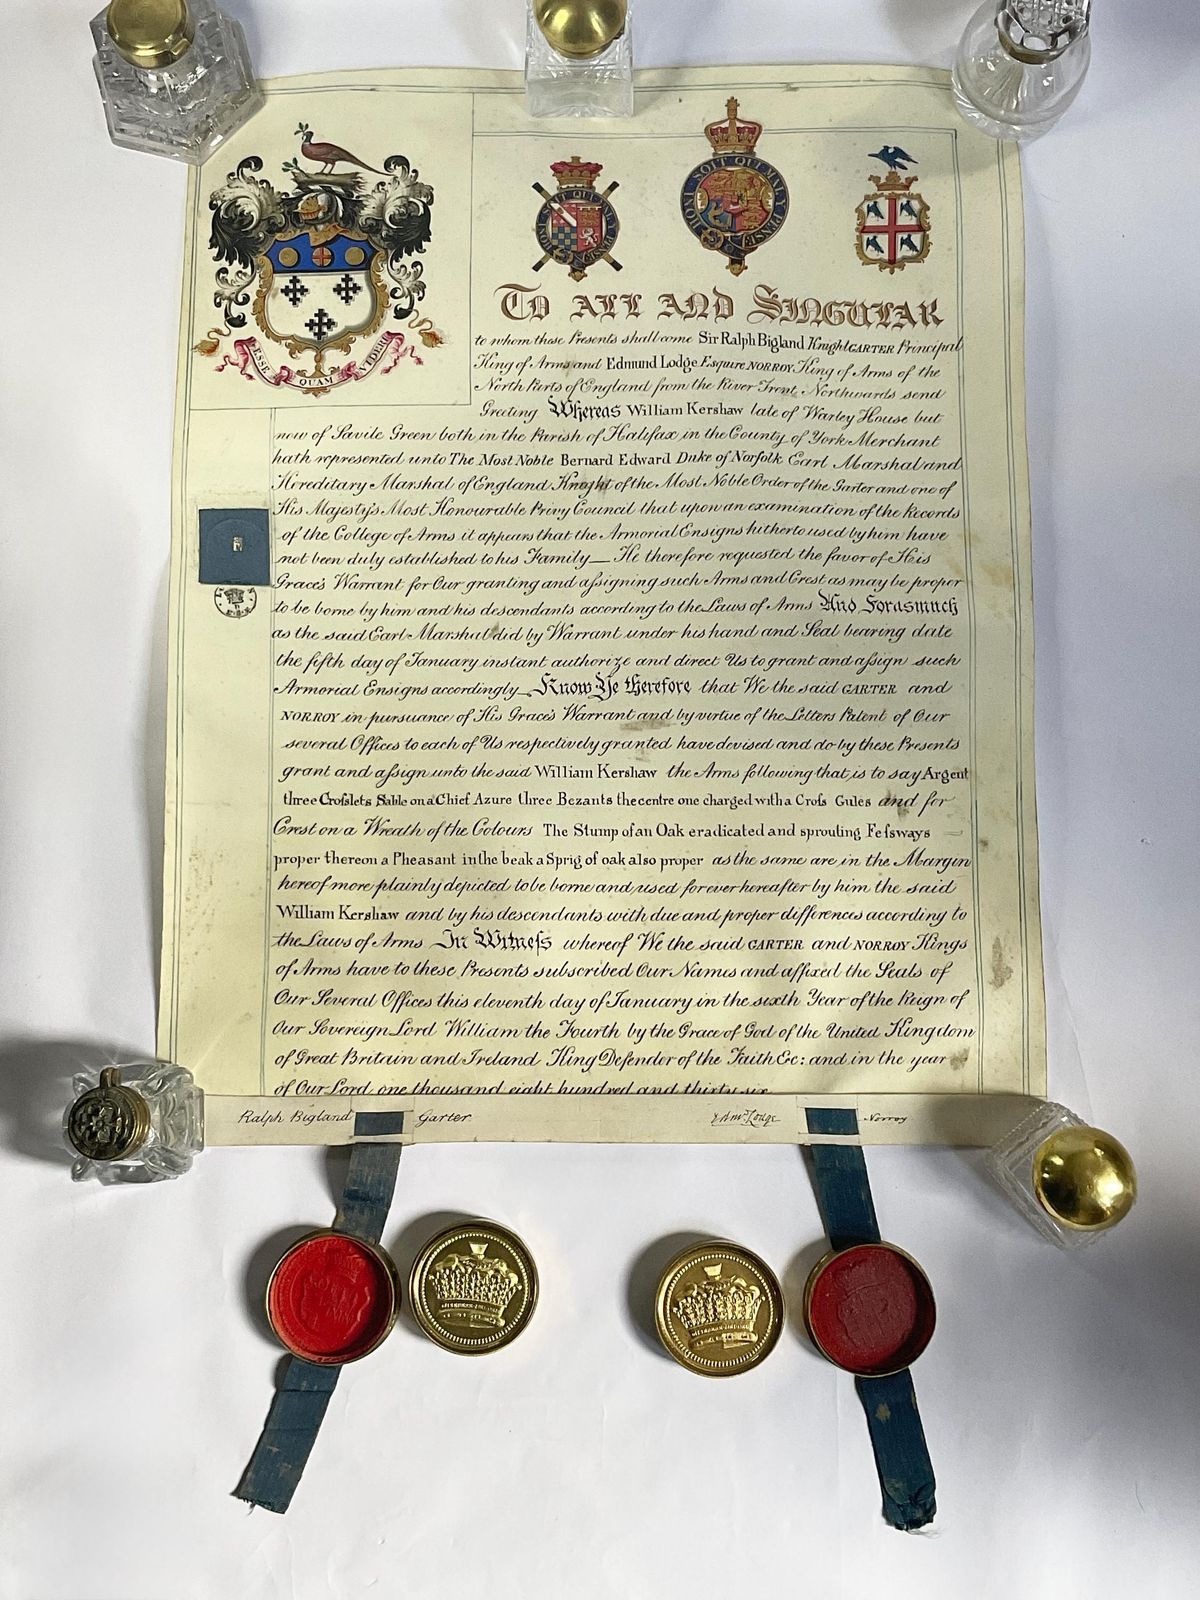 HONI SOIT QUI MAL Y PENSE
HONI SOIT QUI MAL Y PENSE
ESSE QUAM VIDERI
To All and Singular
to whom these Presents shall come Sir Ralph Bigland Knight GARTER Principal
King of Arms and Edmund Lodge Esquire NORROY King of Arms of the
North Parts of England from the River Trent Northwards send
Greeting Whereas William Kershaw late of Warley House but
now of Savile Green both in the Parish of Halifax in the County of York Merchant
hath represented unto The Most Noble Bernard Edward Duke of Norfolk Earl Marshal and
Hereditary Marshal of England Knight of the Most Noble Order of the Garter and one of
His Majesty's Most Honourable Privy Council that upon an examination of the Records
of the College of Arms it appears that the Armorial Ensigns hitherto used by him have
not been duly established to his Family — He therefore requested the favor of His
Grace's Warrant for Our granting and assigning such Arms and Crest as may be proper
to be borne by him and his descendants according to the Laws of Arms And Forasmuch
as the said Earl Marshal did by Warrant under his hand and Seal bearing date
the fifth day of January instant authorize and direct Us to grant and assign such
Armorial Ensigns accordingly Know Ye therefore that We the said GARTER and
NORROY in pursuance of His Grace's Warrant and by virtue of the Letters Patent of Our
several Offices to each of Us respectively granted have devised and do by these Presents
grant and assign unto the said William Kershaw the Arms following that is to say Argent
three Crosslets Sable on a Chief Azure three Bezants the centre one charged with a Cross Gules and for
Crest on a Wreath of the Colours The Stump of an Oak eradicated and sprouting Fessways
proper thereon a Pheasant in the beak a Sprig of oak also proper as the same are in the Margin
hereof more plainly depicted to be borne and used for ever hereafter by him the said
William Kershaw and by his descendants with due and proper differences according to
the Laws of Arms In Witness whereof We the said GARTER and NORROY Kings
of Arms have to these Presents subscribed Our Names and affixed the Seals of
Our Several Offices this eleventh day of January in the sixth Year of the Reign of
Our Sovereign Lord William the Fourth by the Grace of God of the United Kingdom
of Great Britain and Ireland King Defender of the Faith &c: and in the year
of Our Lord one thousand eight hundred and thirty six
Ralph Bigland Garter
Edm. Lodge Norroy